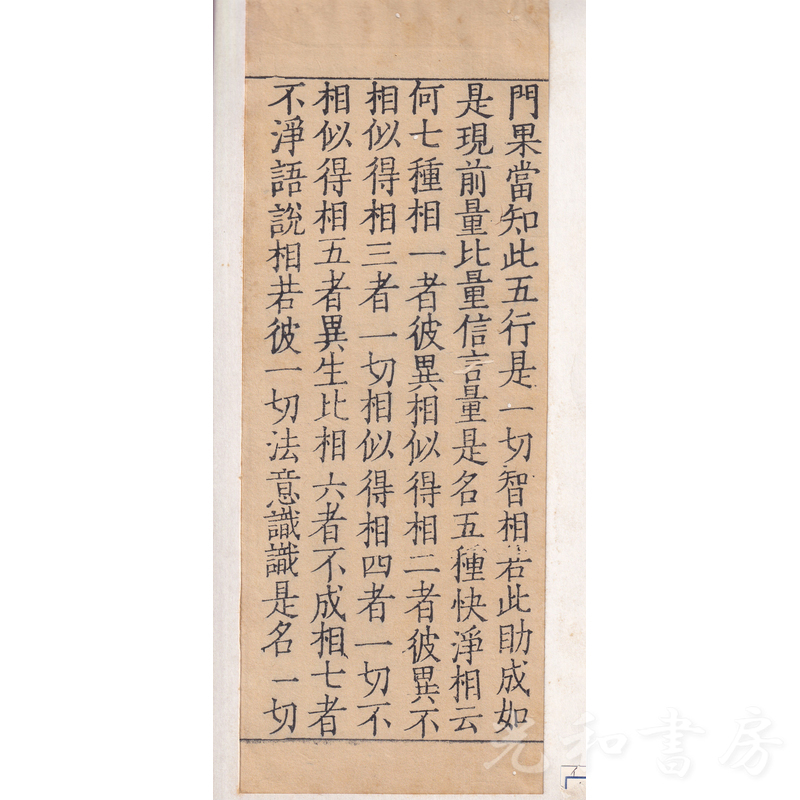 門果當知此五行是一切智相若此助成如
是現前量比量信言量是名五種快淨相云
何七種相一者彼異相似得相二者彼異不
相似得相三者一切相似得相四者一切不
相似得相五者異生比相六者不成相七者
不淨語說相若彼一切法意識識是名一切
光和書房